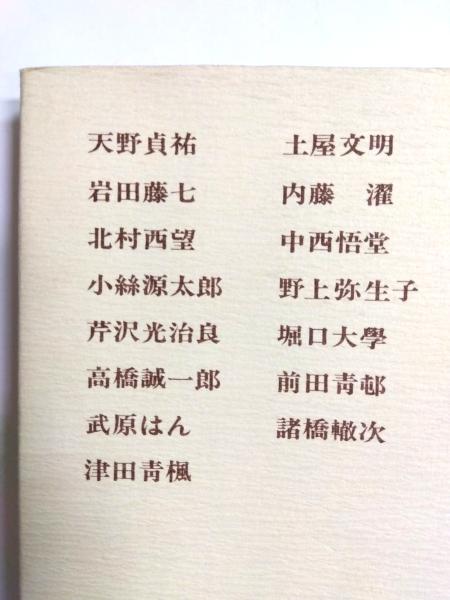 天野貞祐
岩田藤七
北村西望
小絲源太郎
芹沢光治良
高橋誠一郎
武原はん
津田青楓
土屋文明
内藤　濯
中西悟堂
野上弥生子
堀口大學
前田青邨
諸橋轍次